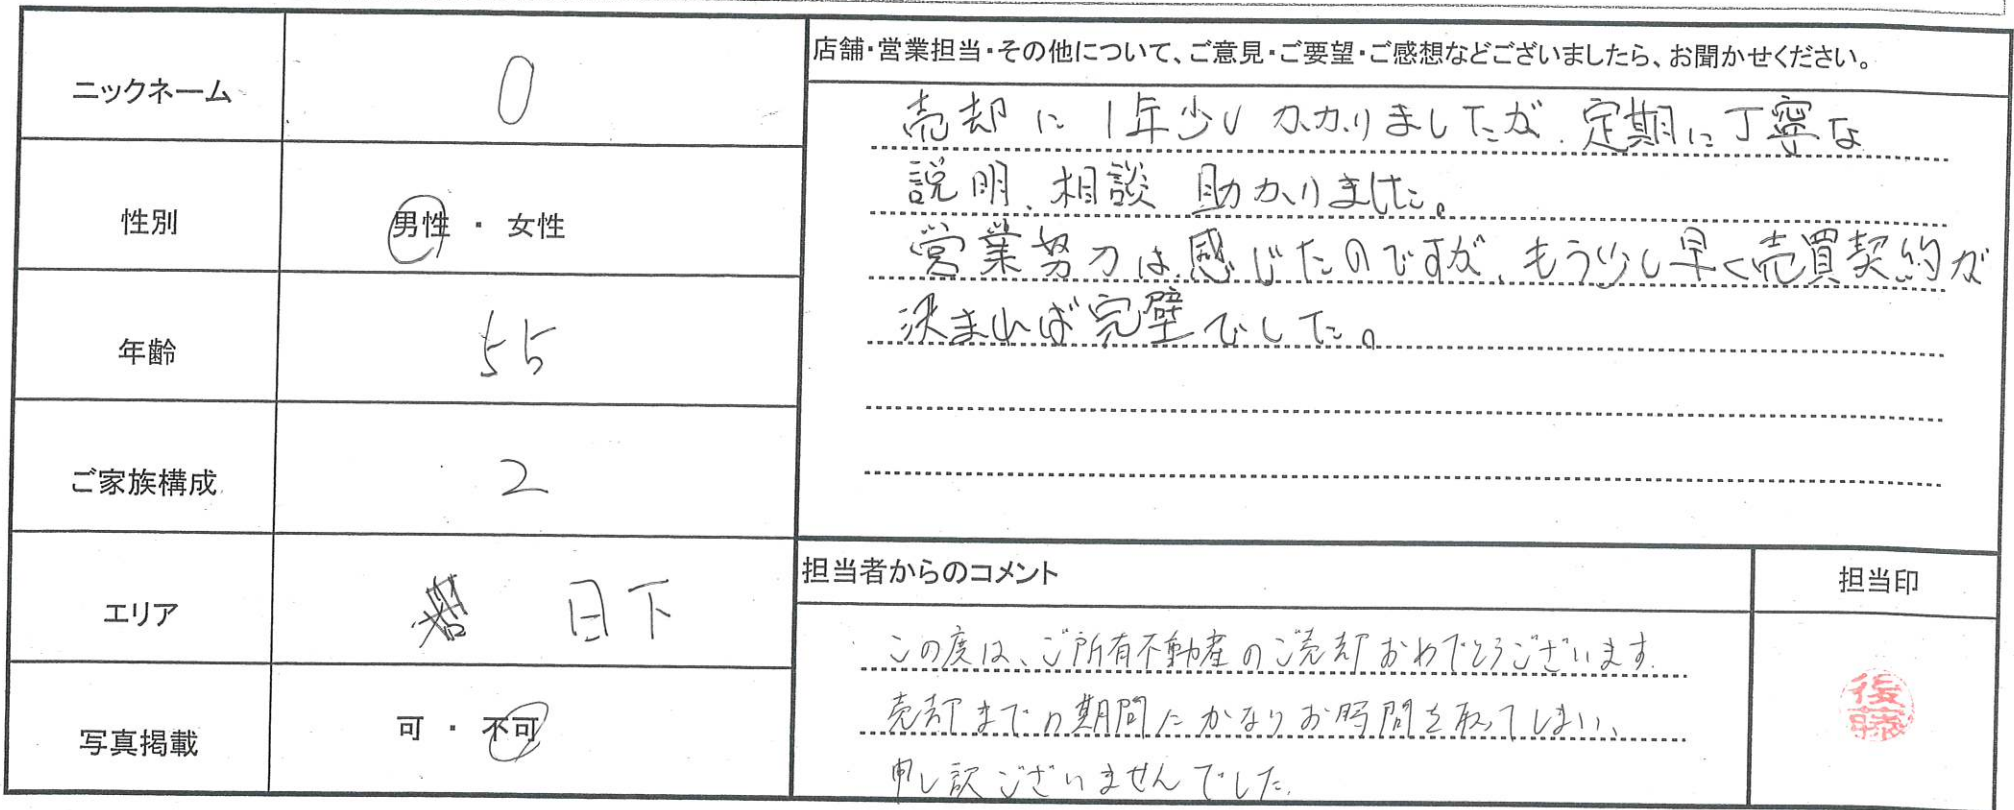 ニックネーム
O
性別
男性 ・ 女性
年齢
55
ご家族構成
2
エリア
日下
写真掲載
可 ・ 不可
店舗・営業担当・その他について、ご意見・ご要望・ご感想などございましたら、お聞かせください。
売却に1年少しかかりましたが、定期に丁寧な
説明、相談 助かりました。
営業努力は感じたのですが、もう少し早く売買契約が
決まれば完璧でした。
担当者からのコメント
この度は、ご所有不動産のご売却おめでとうございます。
売却までの期間にかなりお時間を取ってしまい、
申し訳ございませんでした。
担当印
後藤